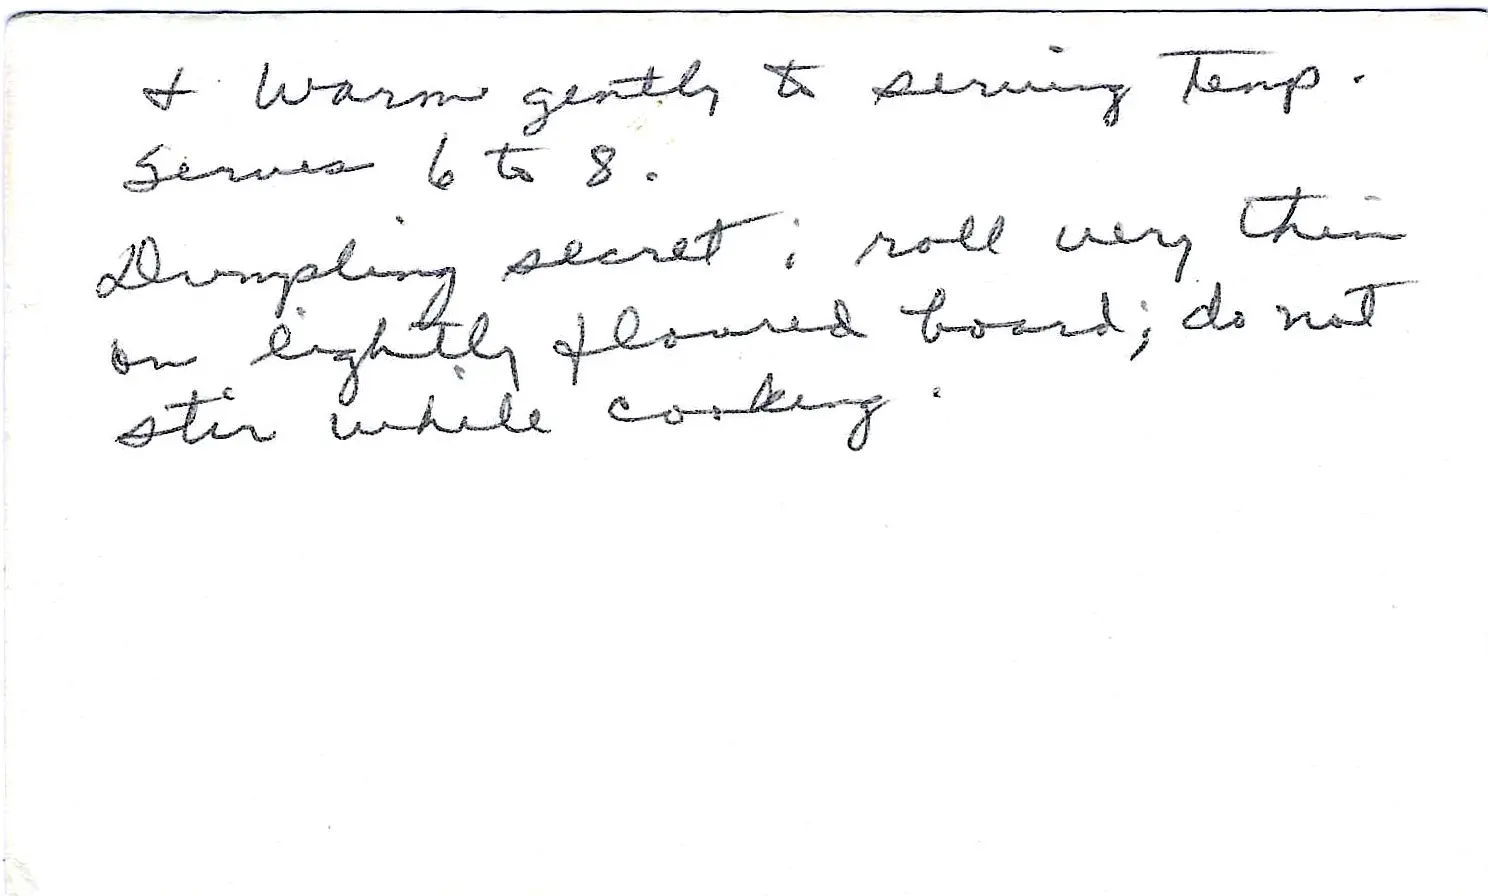 & Warm gently to serving Temp.
Serves 6 to 8.
Dumpling secret: roll very thin
on lightly floured board; do not
stir while cooking.